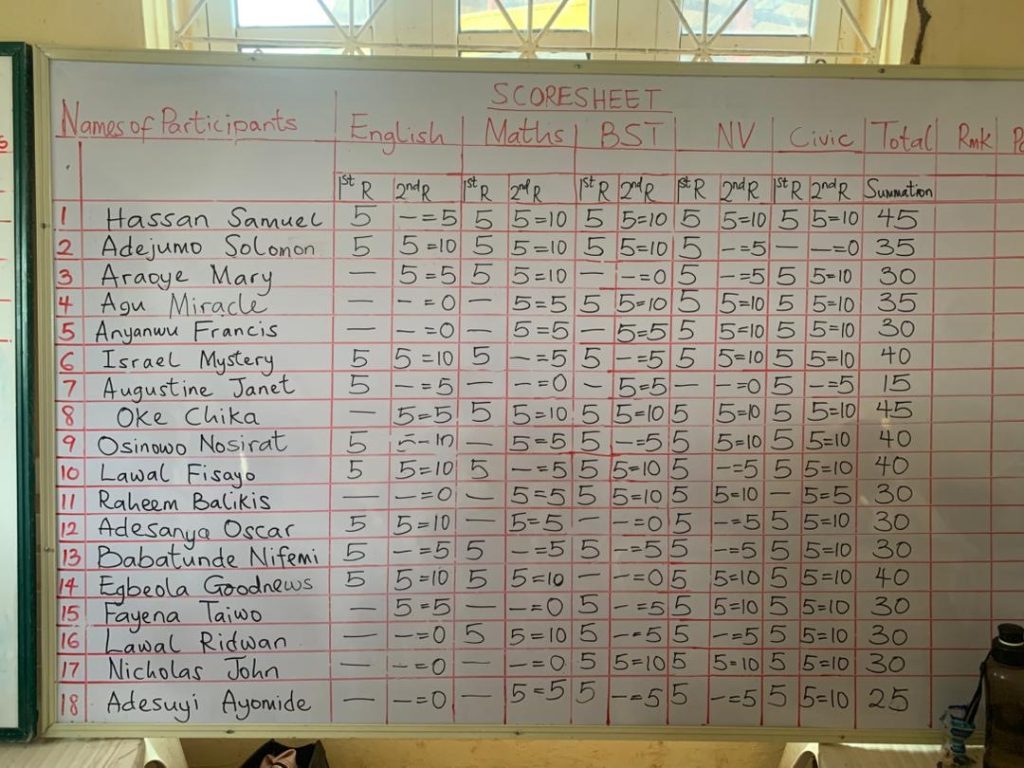 SCORESHEET
Names of Participants English Maths BST NV Civic Total Rmk
1st R 2nd R 1st R 2nd R 1st R 2nd R 1st R 2nd R 1st R 2nd R Summation
1 Hassan Samuel 5 -=5 5 5=10 5 5=10 5 5=10 5 5=10 45
2 Adejumo Solomon 5 5=10 5 5=10 5 5=10 5 -=5 - -=0 35
3 Araoye Mary - 5=5 5 5=10 - -=0 5 -=5 5 5=10 30
4 Agu Miracle - -=0 - 5=5 5 5=10 5 5=10 5 5=10 35
5 Anyanwu Francis - -=0 - 5=5 - 5=5 5 5=10 5 5=10 30
6 Israel Mystery 5 5=10 5 -=5 5 -=5 5 5=10 5 5=10 40
7 Augustine Janet 5 -=5 - -=0 - 5=5 - -=0 5 -=5 15
8 Oke Chika - 5=5 5 5=10 5 5=10 5 5=10 5 5=10 45
9 Osinowo Nosirat 5 5=10 - 5=5 5 -=5 5 5=10 5 5=10 40
10 Lawal Fisayo 5 5=10 5 -=5 5 5=10 5 -=5 5 5=10 40
11 Raheem Balikis - -=0 - 5=5 5 5=10 5 5=10 - 5=5 30
12 Adesanya Oscar 5 5=10 - 5=5 - -=0 5 -=5 5 5=10 30
13 Babatunde Nifemi 5 -=5 5 -=5 5 -=5 5 -=5 5 5=10 30
14 Egbeola Goodnews 5 5=10 5 5=10 - -=0 5 5=10 5 5=10 40
15 Fayena Taiwo - 5=5 - -=0 5 -=5 5 5=10 5 5=10 30
16 Lawal Ridwan - -=0 5 5=10 5 -=5 5 -=5 5 5=10 30
17 Nicholas John - -=0 - -=0 5 5=10 5 5=10 5 5=10 30
18 Adesuyi Ayomide - -=0 - 5=5 5 -=5 5 -=5 5 5=10 25